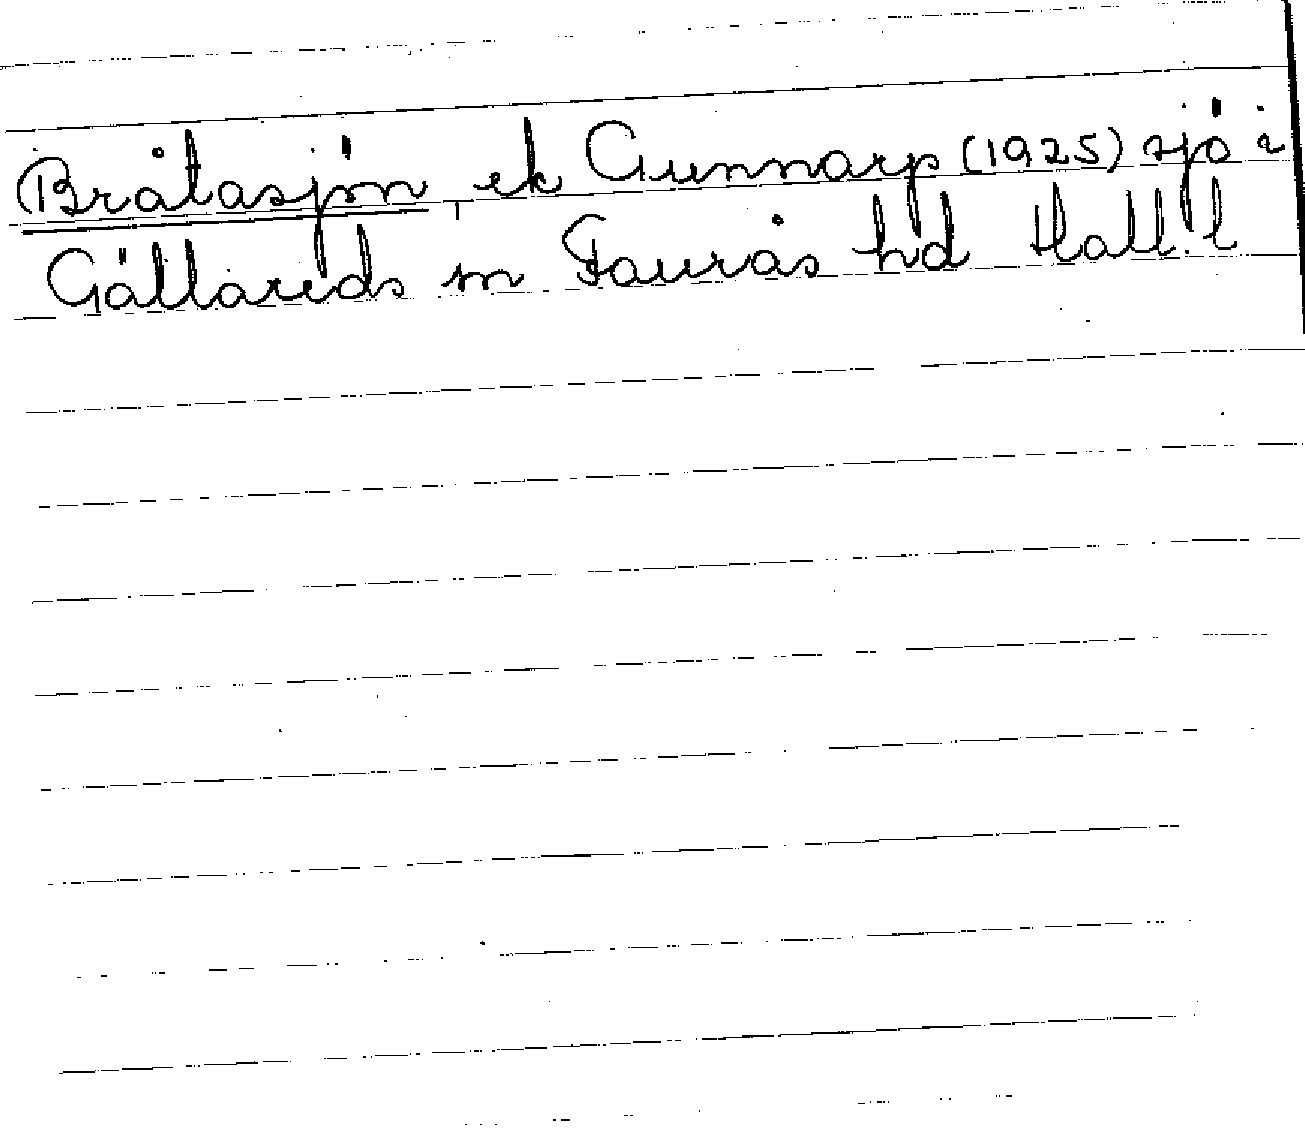 Bråtasjön, ek Gunnarp (1925) sjö i
Gällareds sn Faurås hd Hall. l